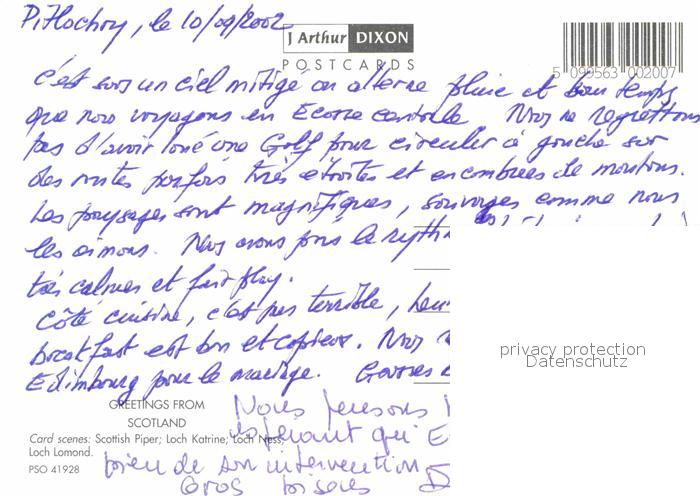 Pitlochry, le 10/09/2002
J Arthur DIXON
POSTCARDS
5 099563 002007
C'est sous un ciel mitigé où alterne pluie et bon temps
que nous voyageons en Ecosse centrale. Nous ne regrettons
pas d'avoir loué une Golf pour circuler à gauche sur
des routes parfois très étroites et encombrées de moutons.
Les paysages sont magnifiques, sauvages comme nous
les aimons. Nous avons pris le rythm
très calmes et fair play.
Côté cuisine, c'est pas terrible,
breakfast est bon et copieux. Nous
Edimbourg pour le mariage. Grosses
privacy protection
Datenschutz
GREETINGS FROM
SCOTLAND
Card scenes: Scottish Piper; Loch Katrine; Loch Ness;
Loch Lomond.
PSO 41928
Nous pensons
espérant qu'E
bien de son intervention
Gros bisous